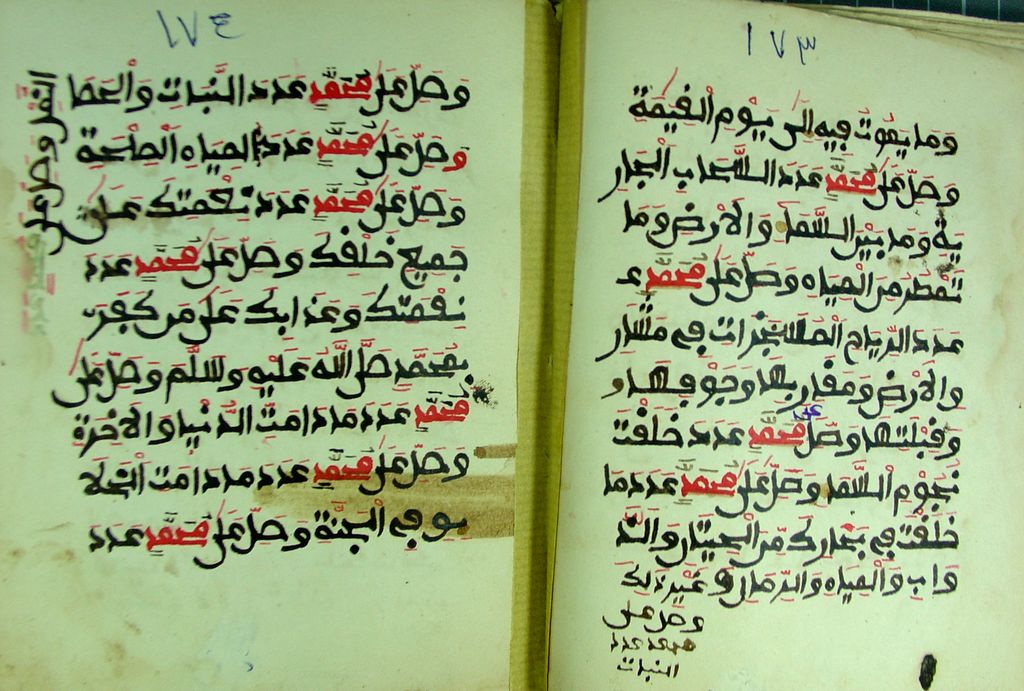 ١٧٣
وما يموت فيه إلى يوم القيمة
وصل على محمد عدد السحاب الجار
ية وما بين السما والارض وما
تمطر من المياه وصل على محمد عـ
عدد الرياح المسخرات في مشار
والارض ومغاربها وجوفها و
وقبلتها وصل على محمد عدد خلقت
نجوم السما وصل على محمد عدد ما
خلقت في بحارك من الحيتان والد
واب والمياه والرمال و غير ذلك
وصل على
محمد عدد
النبات
١٧٤
وصل على محمد عدد النبات والحصا
وصل على محمد عدد المياه الملحة
وصل على محمد عدد نعمتك على
جميع خلقك وصل على محمد عدد
نقمتك وعذابك على من كفر
بمحمد صل الله عليه وسلم وصل على
محمد عدد ما دامت الدنيا والاخرة
وصل على محمد عدد ما دامت الخلا
يق في الجنة وصل على محمد عدد
النمل وصل على
محمد عدد